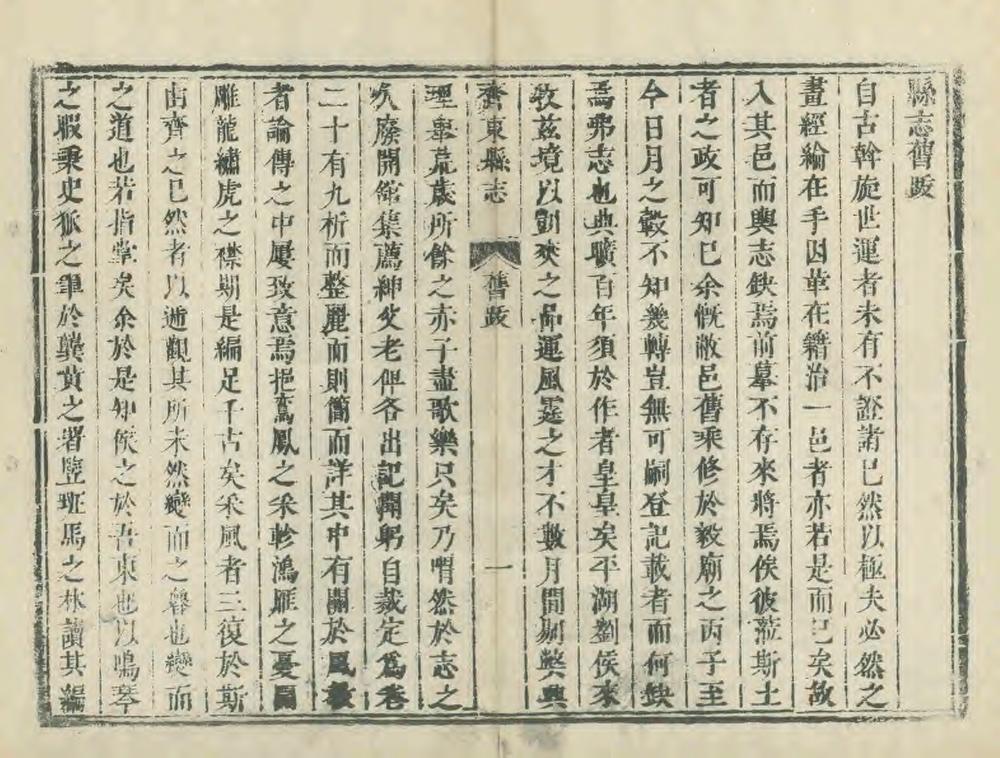 縣志舊跋
自古斡旋世運者未有不證諸已然以極夫必然之
畫經綸在手因革在籍治一邑者亦若是而已矣故
入其邑而輿志缺焉前摹不存來將焉俟彼蒞斯土
者之政可知已余慨敝邑舊乘修於毅廟之丙子至
今日月之轂不知幾轉豈無可嗣登記載者而何缺
焉弗志也典曠百年須於作者皇皇矣平湖劉侯來
牧茲境以劉夾之品運風霆之才不數月間剔弊興
齊東縣志
舊跋
一
理舉荒歲所餘之赤子盡歌樂只矣乃喟然於志之
久廢開館集薦紳父老俾各出記聞躬自裁定為卷
二十有九析而整麗而則簡而詳其中有關於風教
者論傳之中屢致意焉挹鸞鳳之采軫鴻雁之憂
雕龍繡虎之襟期是編足千古矣采風者三復於斯
由齊之已然者以遞觀其所未然變而之魯也變而
之道也若指掌矣余於是知侯之於吾東也以鳴琴
之暇秉史狐之筆於龔黃之署登班馬之林讀其編